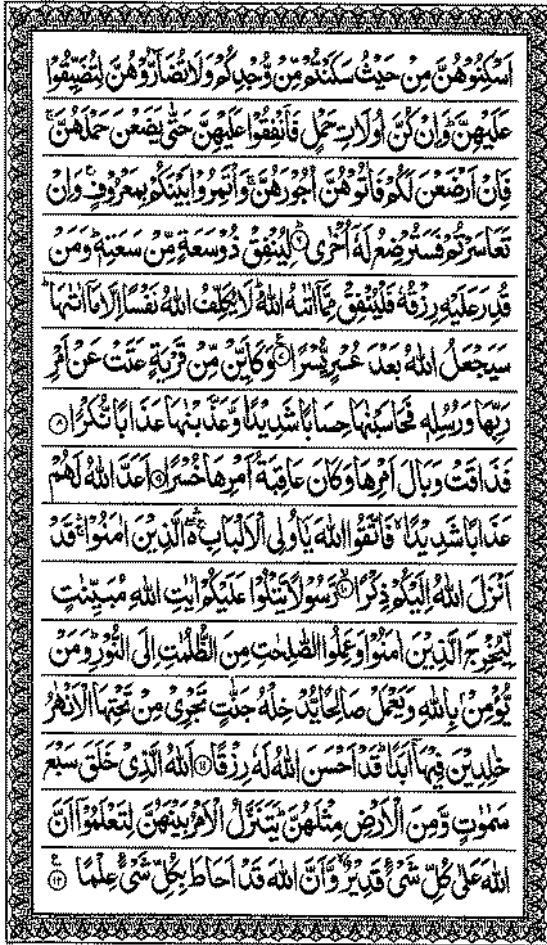 اَسْكِنُوْهُنَّ مِنْ حَيْثُ سَكَنْتُمْ مِّنْ وُّجْدِكُمْ وَلَا تُضَآرُّوْهُنَّ لِتُضَيِّقُوْا
عَلَيْهِنَّ ؕ وَاِنْ كُنَّ اُولَاتِ حَمْلٍ فَاَنْفِقُوْا عَلَيْهِنَّ حَتّٰى يَضَعْنَ حَمْلَهُنَّ ۚ
فَاِنْ اَرْضَعْنَ لَكُمْ فَاٰتُوْهُنَّ اُجُوْرَهُنَّ ۚ وَاْتَمِرُوْا بَيْنَكُمْ بِمَعْرُوْفٍ ۚ وَاِنْ
تَعَاسَرْتُمْ فَسَتُرْضِعُ لَهٗۤ اُخْرٰى ؕ ۶ لِيُنْفِقْ ذُوْ سَعَةٍ مِّنْ سَعَتِهٖ ؕ وَمَنْ
قُدِرَ عَلَيْهِ رِزْقُهٗ فَلْيُنْفِقْ مِمَّاۤ اٰتٰىهُ اللّٰهُ ؕ لَا يُكَلِّفُ اللّٰهُ نَفْسًا اِلَّا مَاۤ اٰتٰىهَا ؕ
سَيَجْعَلُ اللّٰهُ بَعْدَ عُسْرٍ يُّسْرًا ۷ وَكَاَيِّنْ مِّنْ قَرْيَةٍ عَتَتْ عَنْ اَمْرِ
رَبِّهَا وَرُسُلِهٖ فَحَاسَبْنٰهَا حِسَابًا شَدِيْدًا وَّعَذَّبْنٰهَا عَذَابًا نُّكْرًا ۸
فَذَاقَتْ وَبَالَ اَمْرِهَا وَكَانَ عَاقِبَةُ اَمْرِهَا خُسْرًا ۹ اَعَدَّ اللّٰهُ لَهُمْ
عَذَابًا شَدِيْدًا ۙ فَاتَّقُوا اللّٰهَ يٰۤاُولِى الْاَلْبَابِ ۛۚ الَّذِيْنَ اٰمَنُوْا ۛ قَدْ
اَنْزَلَ اللّٰهُ اِلَيْكُمْ ذِكْرًا ۱۰ رَّسُوْلًا يَّتْلُوْا عَلَيْكُمْ اٰيٰتِ اللّٰهِ مُبَيِّنٰتٍ
لِّيُخْرِجَ الَّذِيْنَ اٰمَنُوْا وَعَمِلُوا الصّٰلِحٰتِ مِنَ الظُّلُمٰتِ اِلَى النُّوْرِ ؕ وَمَنْ
يُّؤْمِنْۢ بِاللّٰهِ وَيَعْمَلْ صَالِحًا يُّدْخِلْهُ جَنّٰتٍ تَجْرِىْ مِنْ تَحْتِهَا الْاَنْهٰرُ
خٰلِدِيْنَ فِيْهَاۤ اَبَدًا ؕ قَدْ اَحْسَنَ اللّٰهُ لَهٗ رِزْقًا ۱۱ اَللّٰهُ الَّذِىْ خَلَقَ سَبْعَ
سَمٰوٰتٍ وَّمِنَ الْاَرْضِ مِثْلَهُنَّ ؕ يَتَنَزَّلُ الْاَمْرُ بَيْنَهُنَّ لِتَعْلَمُوْۤا اَنَّ
اللّٰهَ عَلٰى كُلِّ شَىْءٍ قَدِيْرٌ ۙ وَّاَنَّ اللّٰهَ قَدْ اَحَاطَ بِكُلِّ شَىْءٍ عِلْمًا ۱۲